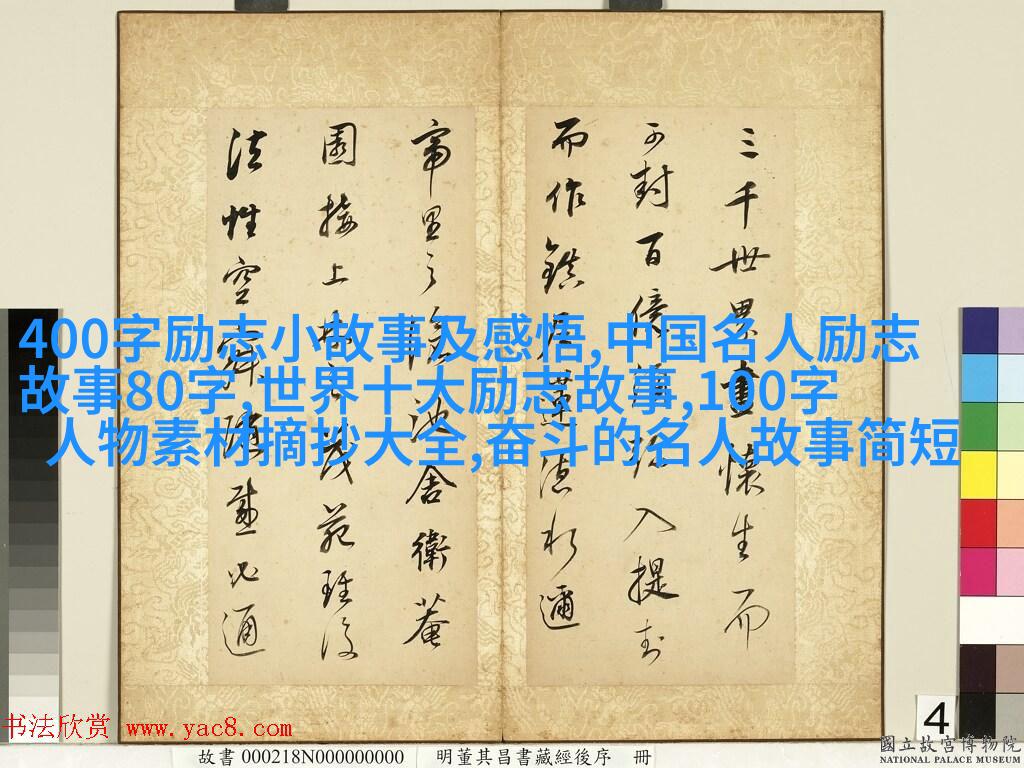 400字励志小故事及感悟,中国名人励志
故事80字,世界十大励志故事,100字
人物素材摘抄大全,奋斗的名人故事简短
三千世界畫懷生而
可封百億入提封
而作鎮蓮於邇
池舍衛菴
園接上林之茂苑
法性空通
4
书法欣赏 www.yac8.com
故書 000218N000000000 明董其昌書藏經後序 冊
國立故宮博物院
NATIONAL PALACE MUSEUM